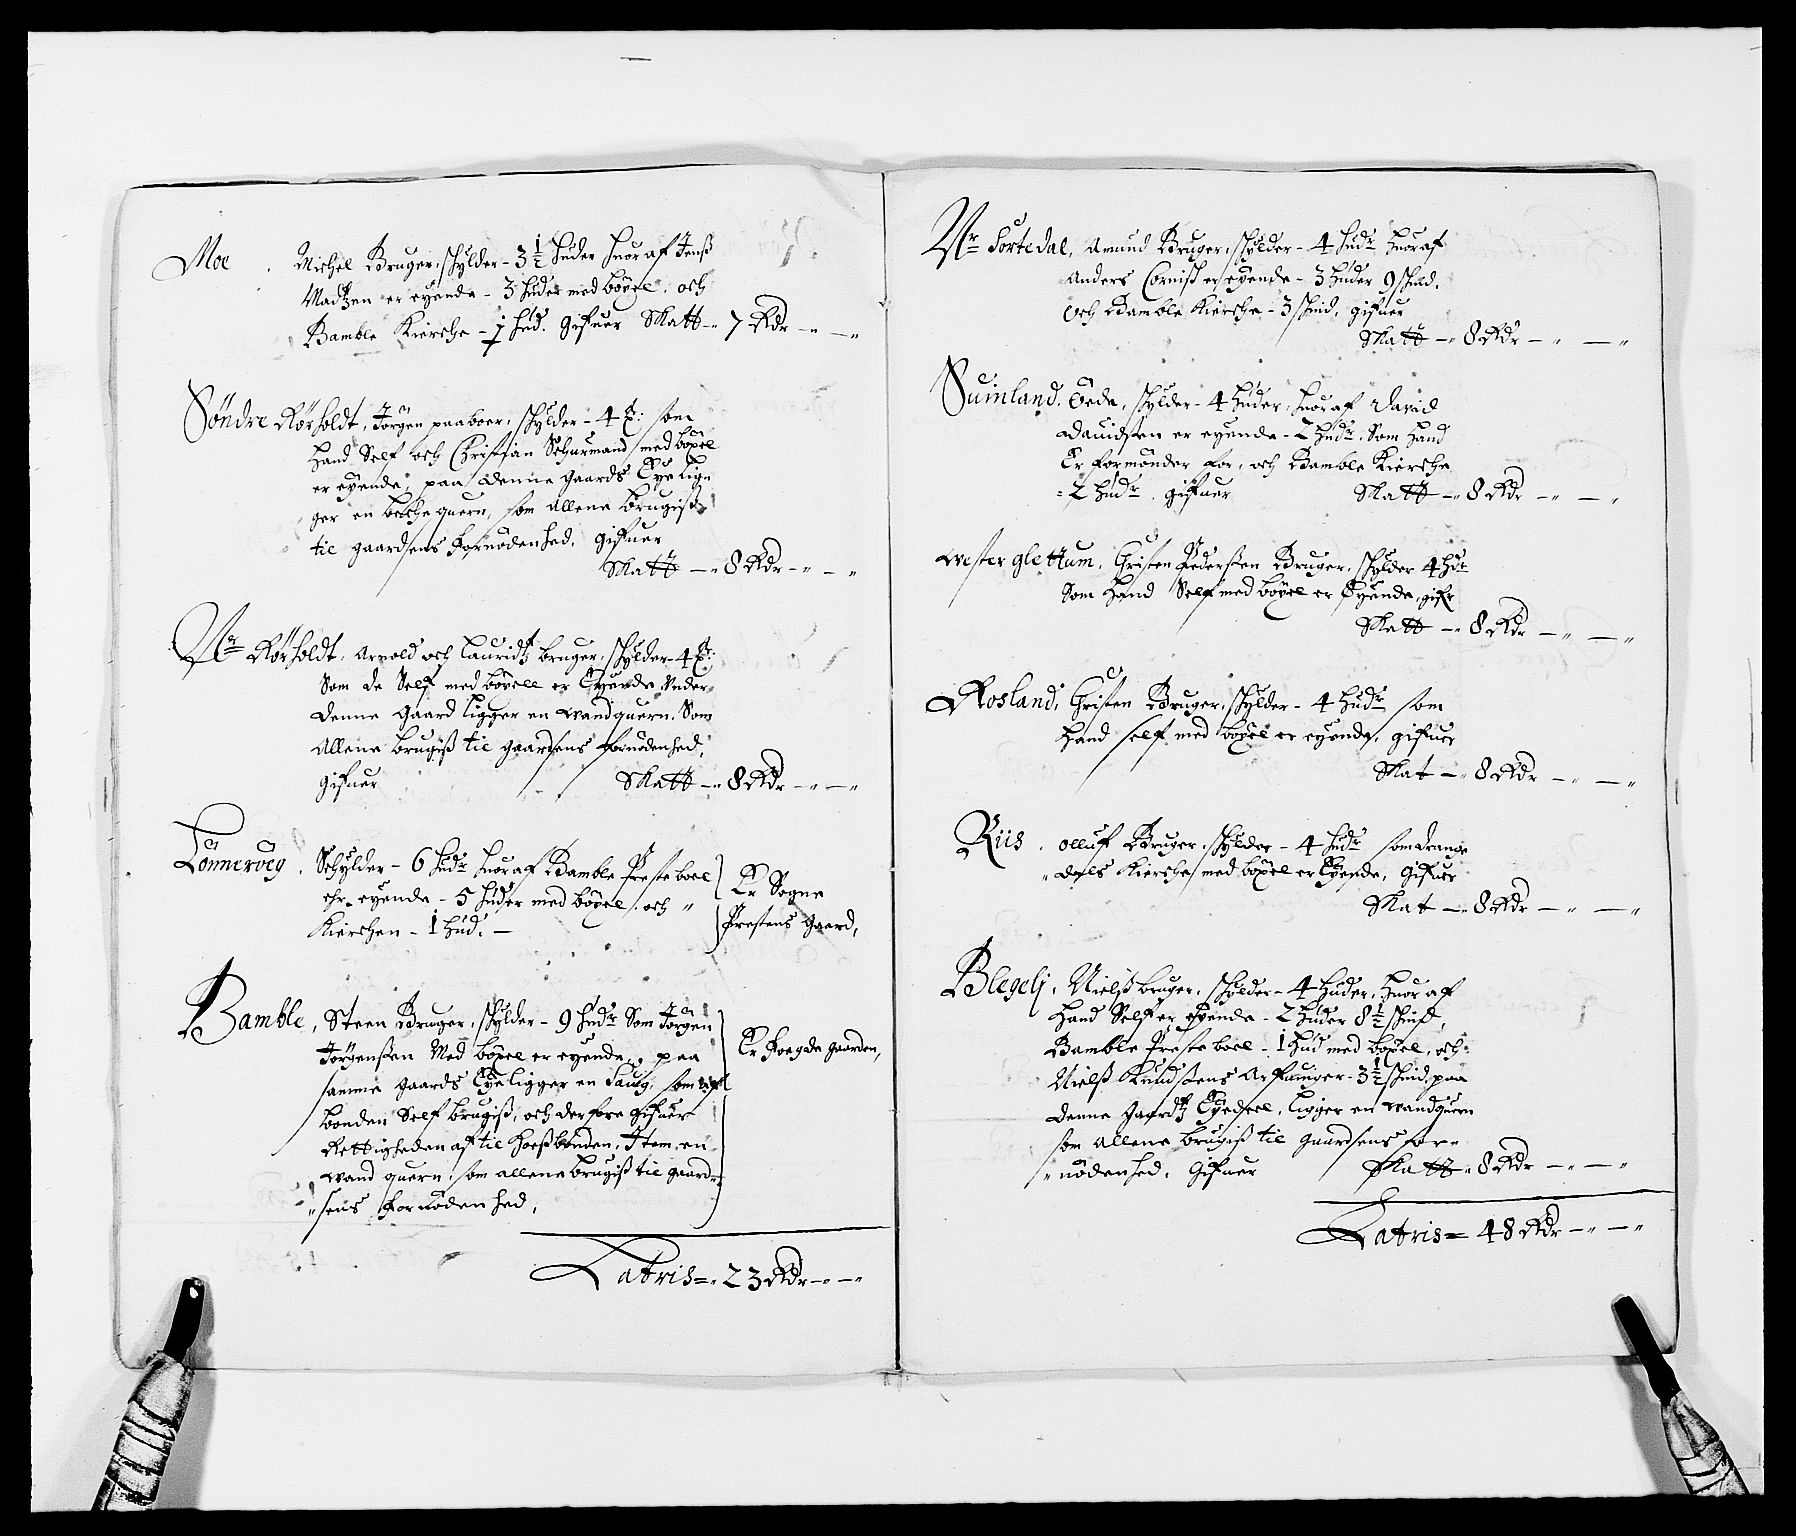 Moe . Michel Bruger, schylder - 3½ huder huor af Jenß
Madtzen er eyende - 3 huder med böxel, och
Bamble Kierche - ½ hud. gifuer Skatt - 7 Rdr - " - "
Söndre Rörholdt, Jörgen paaboer, schylder - 4 som
hand Self och Christian Schurmand med böxel
er eyende, paa denne gaards Eye lig=
ger en beche quern, som allene brugiß
til gaardsens fornödenhed, gifuer
Skatt - " 8 Rdr - " - "
Nr Rörholdt, Arvold och Lauridtz bruger, schylder - 4
Som de Self med böxell er Eyende, Under
denne gaard ligger en wandquern, Som
allene brugiß til gaardsens fornödenhed,
gifuer Skatt - " 8 Rdr - " - "
Lönneroeg . Schylder - 6 hudr huor af Bamble Preste boel
ehr eyende - 5 huder med böxel, och "
Kierchen - 1 hud. -
Er Sogne
Prestens gaard,
Bamble, Steen Bruger, schylder - 9 hudr Som Jörgen
Jörgensen Med böxel er eyende, paa
samme gaards Eye ligger en Saug, som
bonden Self brugiß, och derfore gifuer
Rettigheden af til hoeßbonden, Item en
wand quern, som allene brugiß til gaard=
"sens fornödenhed,
Er Foegde gaarden,
Latris = " 23 Rdr - " - "
Nr Fortedal, Amund Bruger, schylder - 4 hudr huor af
Anders Corniß er eyende - 3 huder 9 skind,
och Bamble Kierche - 3 skind, gifuer
Skatt - " 8 Rdr - " - "
Suinland. Öede, schylder - 4 huder, huor af David
Dauidsen er eyende - 2 hudr, Som hand
Er formönder for, och Bamble Kierche
= 2 hudr. gifuer Skatt - " 8 Rdr - " - "
Wester glettum, Christen Pedersen Bruger, schylder 4 hdr
Som hand Self med böxel er Eyende, gifr
Skatt - " 8 Rdr - " - "
Rosland, Christen Bruger, schylder - 4 hudr som
hand self med böxel er eyende, gifuer
Skat - " 8 Rdr - " - "
Riis . Olluf Bruger, schylder - 4 hudr som drange
"dals Kierche med böxel er Eyende, gifuer
Skat - " 8 Rdr - " - "
Blegelj, Nielß bruger, schylder - 4 huder, huor af
hand Self er eyende - 2 huder 8½ skind,
Bamble Preste boel - 1 hud med böxel, och
Nielß Knudsens Arfuinger - 3½ skind, paa
denne gaardtz Eyedeel, ligger en wandquern
som allene brugiß til gaardsens for=
"nödenhed, gifuer Skatt " 8 Rdr - " - "
Latris = 48 Rdr - " - "